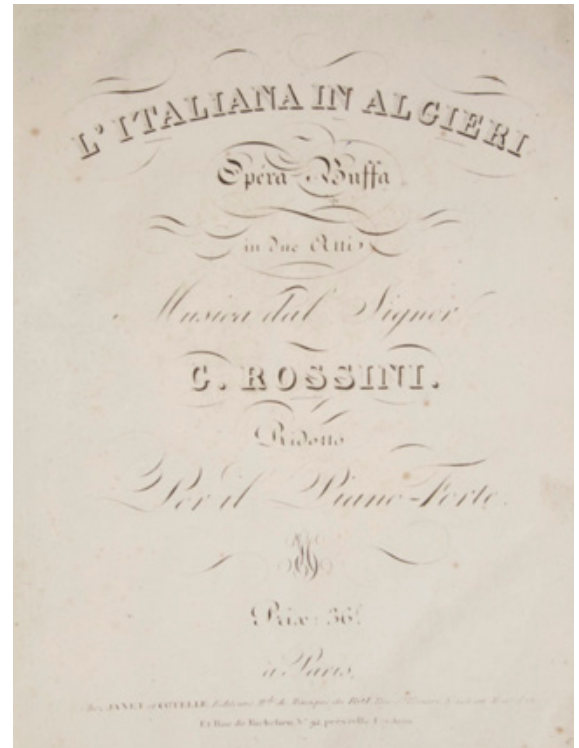 L'ITALIANA IN ALGIERI
Opéra Buffa
in due Atti
Musica dal Signor
G. ROSSINI.
Ridotto
Per il Piano-Forte.
Prix: 36f.
à Paris,
Chez JANET et COTELLE, Editeurs Mds de Musique du ROI, Rue St Honoré,
Et Rue de Richelieu, No 92